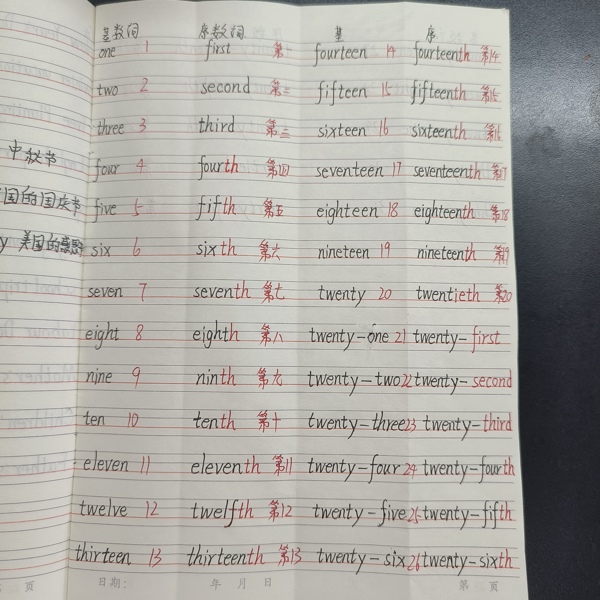 基数词 序数词 基 序
one 1 first 第一 fourteen 14 fourteenth 第14
two 2 second 第二 fifteen 15 fifteenth 第15
three 3 third 第三 sixteen 16 sixteenth 第16
中秋节
four 4 fourth 第四 seventeen 17 seventeenth 第17
国的国庆节
five 5 fifth 第五 eighteen 18 eighteenth 第18
y 美国的感恩
six 6 sixth 第六 nineteen 19 nineteenth 第19
seven 7 seventh 第七 twenty 20 twentieth 第20
eight 8 eighth 第八 twenty-one 21 twenty-first
nine 9 ninth 第九 twenty-two 22 twenty-second
ten 10 tenth 第十 twenty-three 23 twenty-third
eleven 11 eleventh 第11 twenty-four 24 twenty-fourth
twelve 12 twelfth 第12 twenty-five 25 twenty-fifth
thirteen 13 thirteenth 第13 twenty-six 26 twenty-sixth
页 日期: 年 月 日 第 页